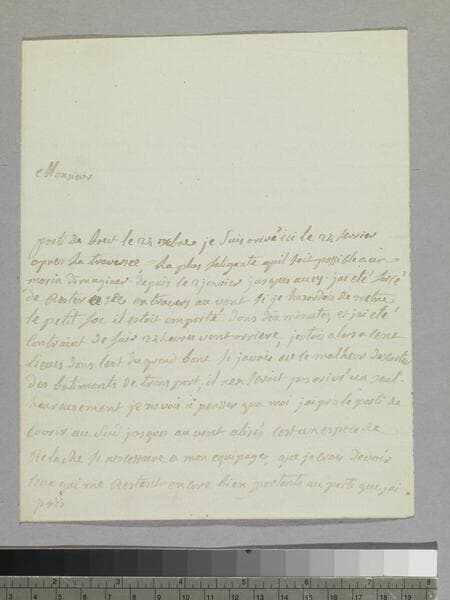 Monsieur
parti de brest le 24 xbre je suis arivé ici le 24 fevrier
apres la traversée la plus fatigante qu'il soit possible a un
marin dimaginer depuis le 2 janvier jusques au 29 jai eté forcé
de rester en travers au vent si je hasardois de metre
le petit foc il estoit emporté dans dix minutes et jai eté
contraint de fuir 24 heures vent arriere, jestois alors a cent
lieues dans lest du grand banc si javois eu le malheur descorter
des batiments de transport, il nen seroit pas arivé un seul
heureusement je navois a penser qua moi jai pris le parti de
courir au Sud jusques au vent alisés cest un espece de
relache si nessessaire a mon equipage, que je crois devoir
ceux qui me restent encore bien portants au parti que jai
pris